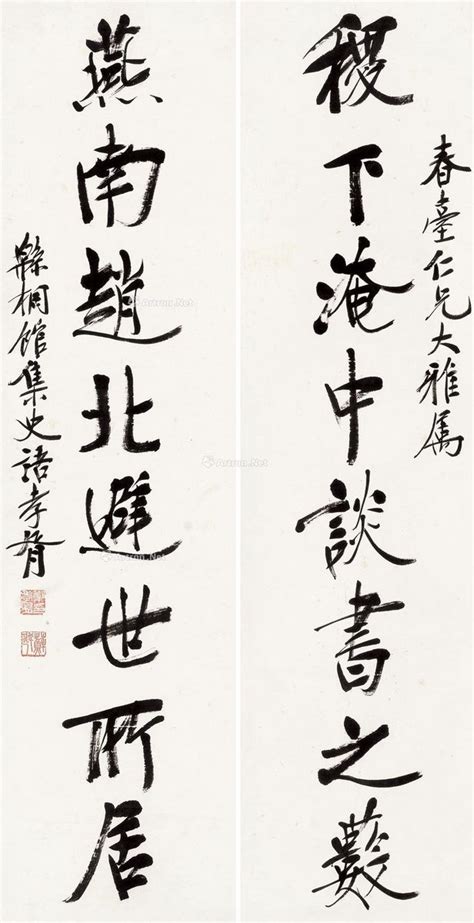 春臺仁兄大雅屬
稷下淹中談書之藪
燕南趙北避世所居
緜桐館集史語孝胥
Artron.Net